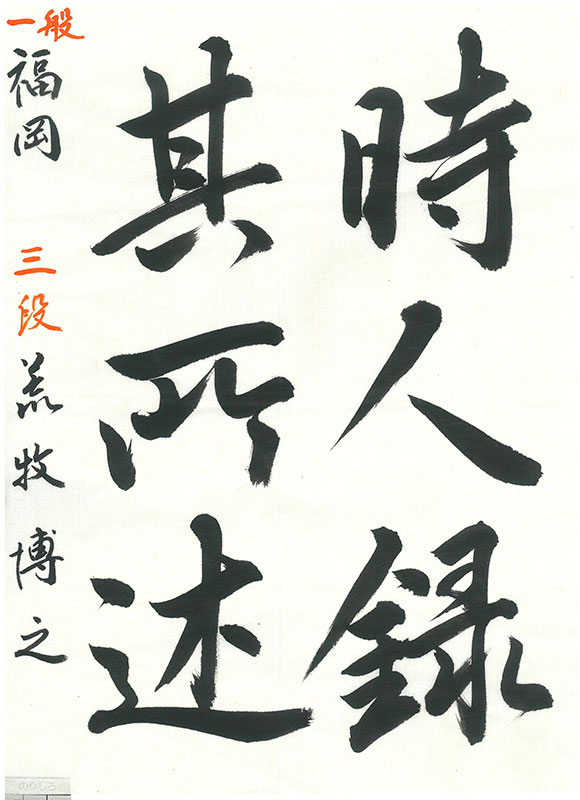 時人録
其所述
一般 福岡 三段 荒牧博之
のりしろ